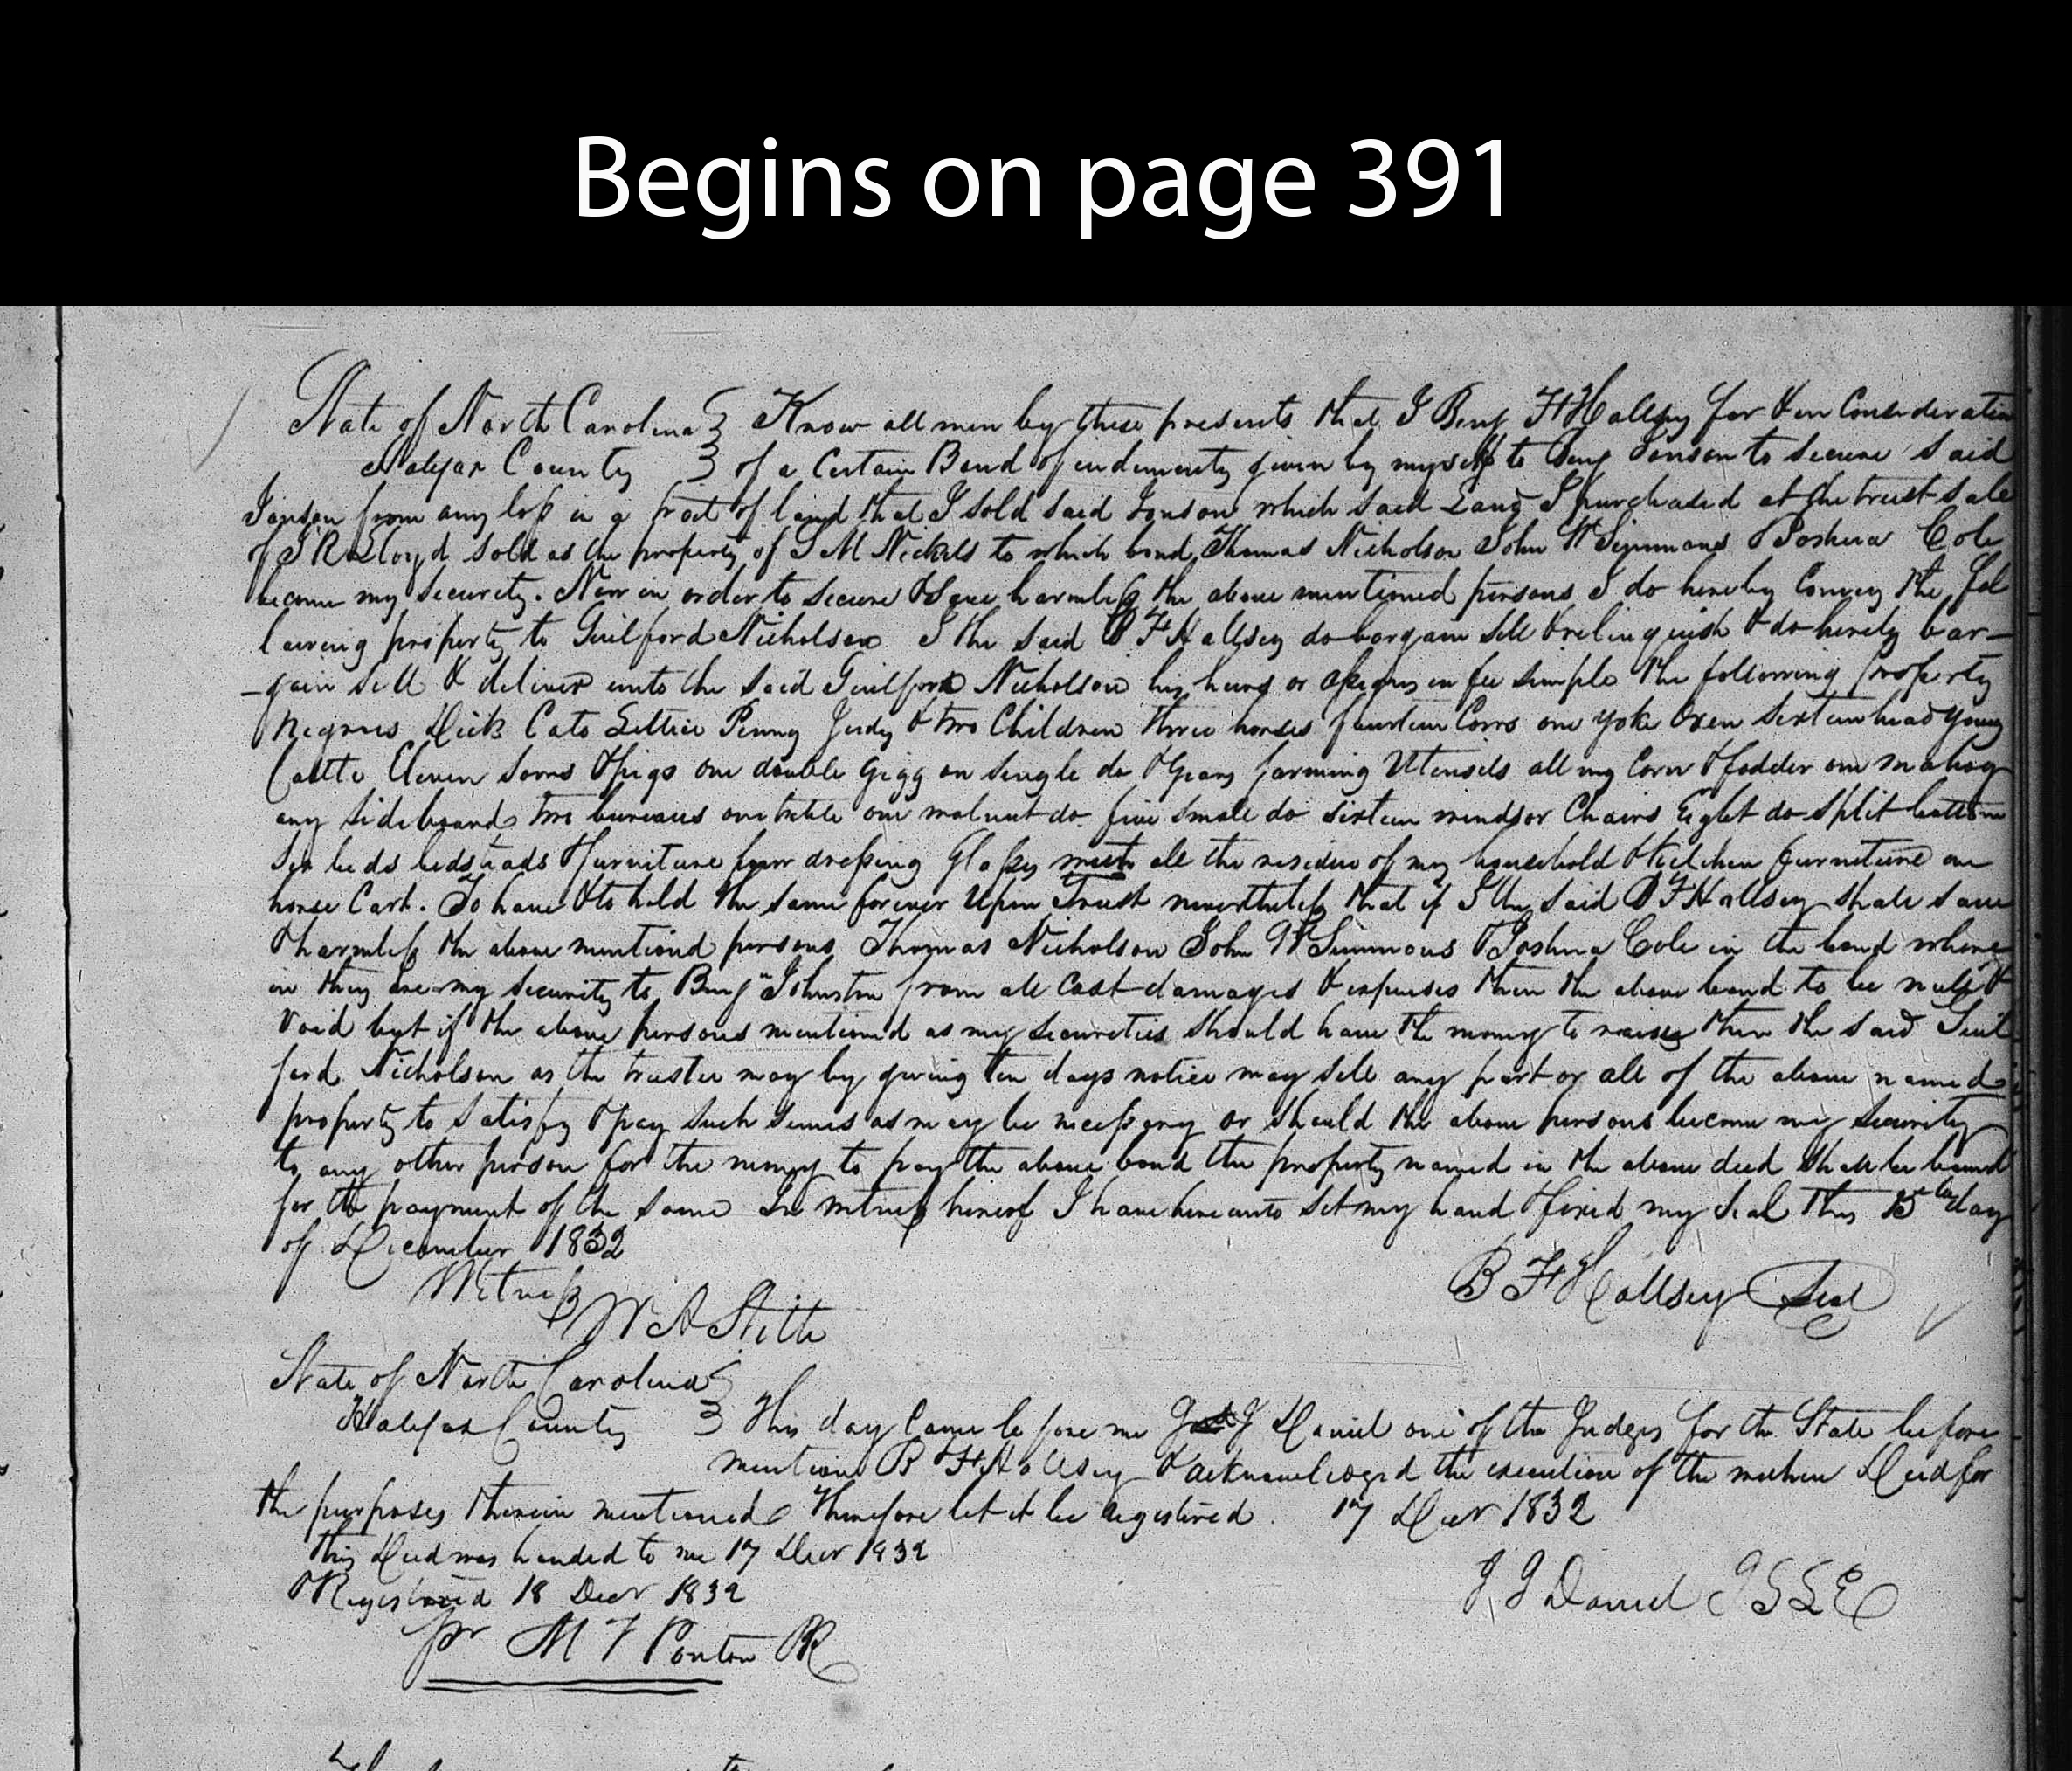 Begins on page 391
State of North Carolina } Know all men by these presents that I Benj F Hallsey for & in Consideration
Halifax County } of a Certain Bond of indemnity given by myself to Benj Jonson to secure said
Jonson from any loss in a tract of land that I sold said Jonson which said Land I purchased at the trust sale
of S R Lloyd sold as the property of S M Nickels to which bond Thomas Nicholson John W Simmons & Joshua Cole
become my Security. Now in order to Secure & Save harmless the above mentioned persons I do hereby Convey the fol
lowing property to Guilford Nicholson I the said B F Hallsey do bargain sell & relinquish & do hereby bar-
-gain sell & deliver unto the said Guilford Nicholson his heirs or assigns in fee simple the following property
Negroes Dick Cato Lettice Penny Judy & two Children three horses fourteen Cows one yoke Oxen Sixteen head young
Cattle Eleven Sows & pigs one double Gigg on Single do & Gears farming Utensils all my Corn & fodder one mahog
any Sideboard two bureaus one table one walnut do five small do sixteen windsor Chairs Eight do split bottom
Six beds bedsteads & furniture four dressing Glasses with all the residue of my household & kitchen furniture one
horse Cart. To have & to hold the same forever Upon Trust nevertheless that if I the said B F Hallsey shall save
& harmless the above mentioned persons Thomas Nicholson John W Simmons & Joshua Cole in the bond where
in they are my security to Benj Johnston from all Cost damages & expenses then the above bond to be null &
Void but if the above persons mentioned as my Securities should have the money to raise then the said Guil
ford Nicholson as the trustee may by giving ten days notice may sell any part or all of the above named
property to satisfy & pay such sums as may be necessary or should the above persons become my security
to any other person for the money to pay the above bond the property named in the above deed shall be bound
for the payment of the same In witness hereof I have hereunto set my hand & fixed my seal this 15th day
of December 1832
Witness B F Hallsey Seal
W A Stith
State of North Carolina }
Halifax County } This day Came before me J J Daniel one of the Judges for the State before
mention B F Hallsey & acknowledged the execution of the within Deed for
the purposes therein mentioned Therefore let it be registered. 17 Decr 1832
This Deed was handed to me 17 Decr 1832
& Registered 18 Decr 1832 J J Daniel J S L E
pr M T Ponton PR